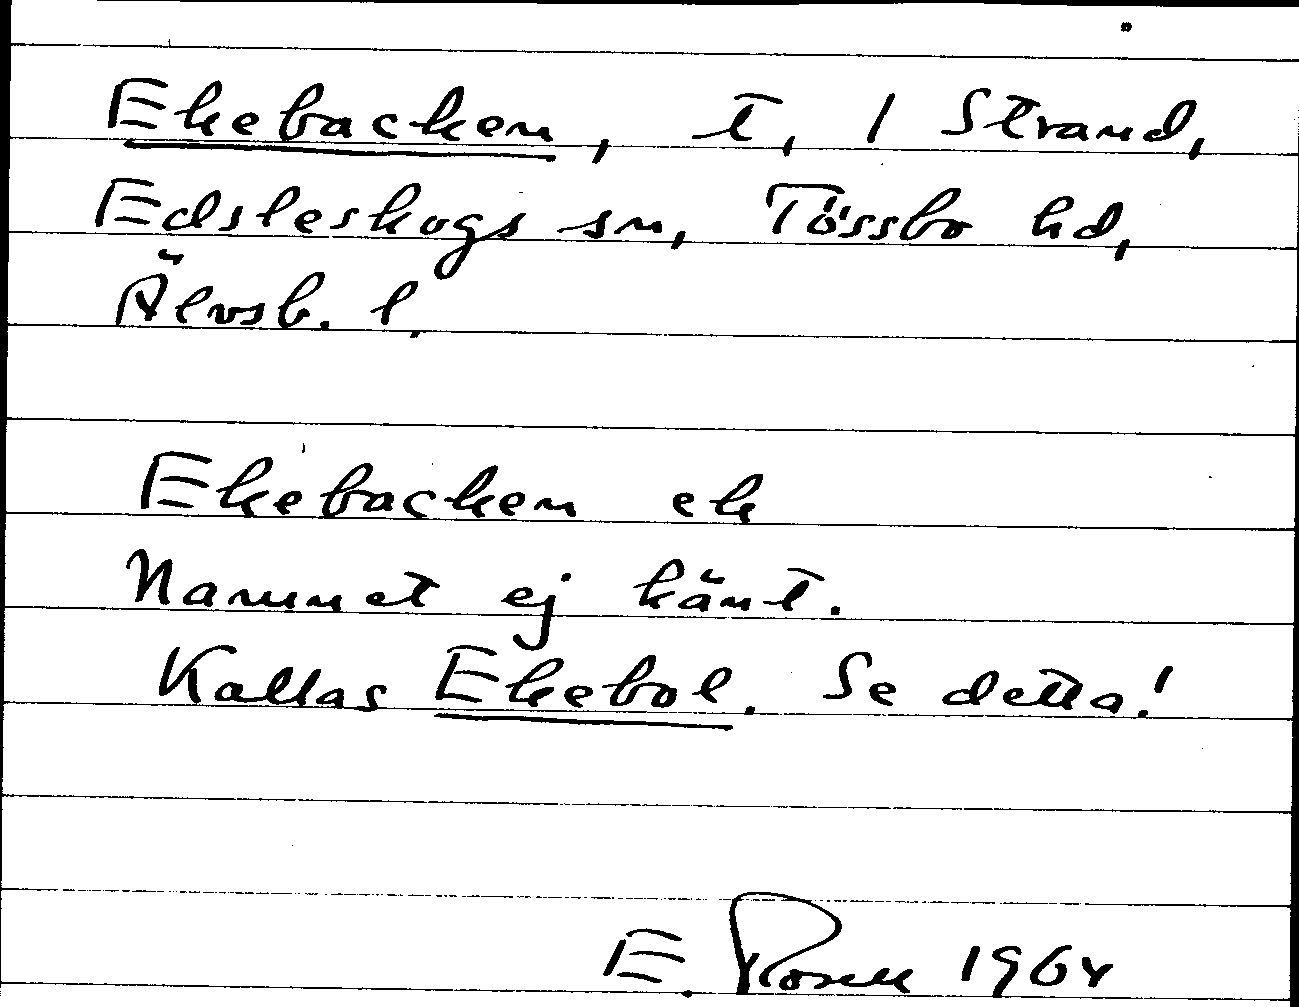 Ekebacken, t, 1 Strand,
Edsleskogs sn, Tössbo hd,
Älvsb. l.
Ekebacken ek
Namnet ej känt.
Kallas Ekebol. Se detta!
E. Rosell 1964